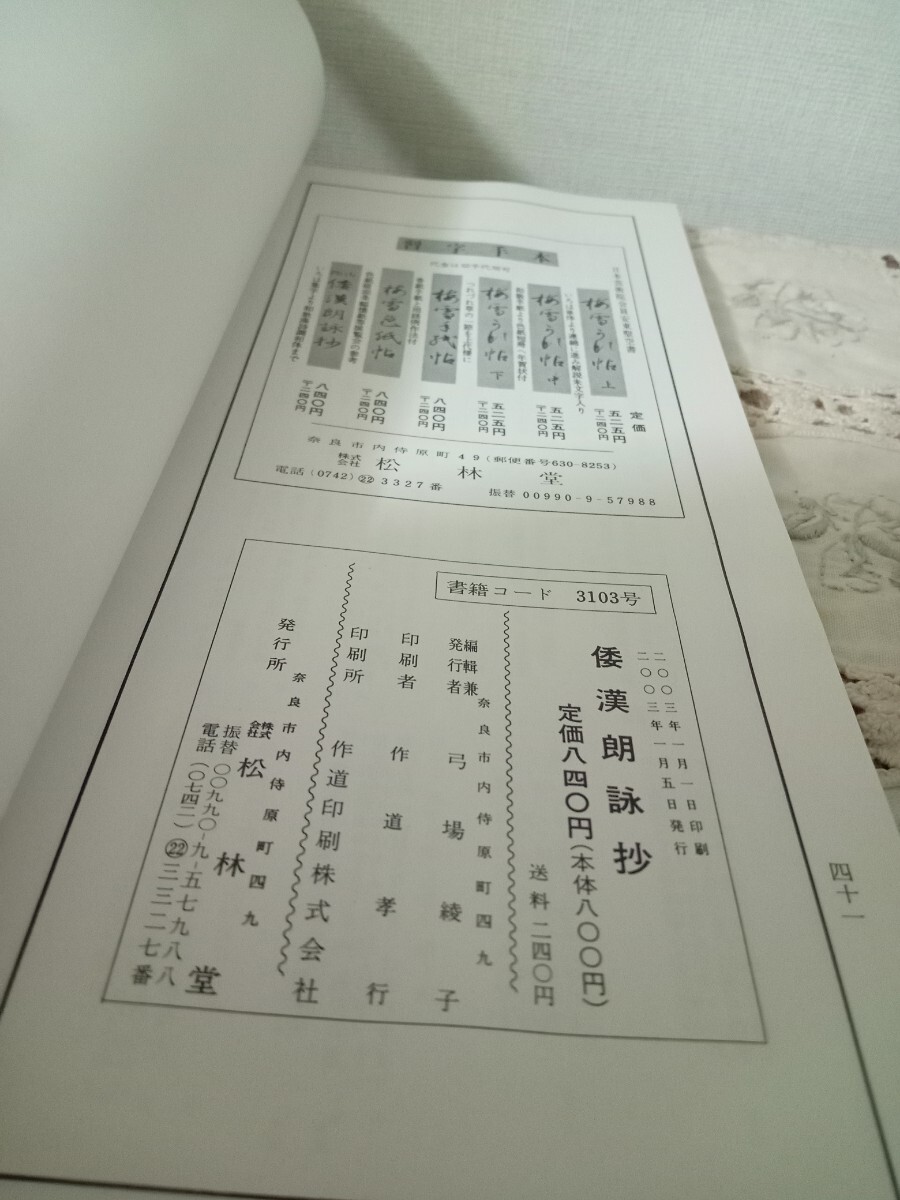 習字手本
日本芸術院会員安東聖空書
定価
梅雪かな帖 上
いろは単体より連綿に進み解説本文字入り
五二五円
〒二四〇円
梅雪かな帖 中
五二五円
〒二四〇円
梅雪かな帖 下
つれづれ草の一節を上代様に
五二五円
〒二四〇円
八四〇円
〒二四〇円
梅雪色紙帖
八四〇円
〒二四〇円
倭漢朗詠抄
八四〇円
〒二四〇円
奈良市内侍原町49(郵便番号630-8253)
株式会社 松林堂
電話(0742)㉒3327番 振替00990-9-57988
書籍コード 3103号
二〇〇三年一月一日印刷
二〇〇三年一月五日発行
倭漢朗詠抄
定価八四〇円(本体八〇〇円)
送料二四〇円
奈良市内侍原町四九
編輯兼発行者 弓場綾子
印刷者 作道孝行
印刷所 作道印刷株式会社
奈良市内侍原町四九
発行所 株式会社 松林堂
振替〇〇九九〇-九-五七九八八
電話(〇七四二)㉒三三二七番
四十一